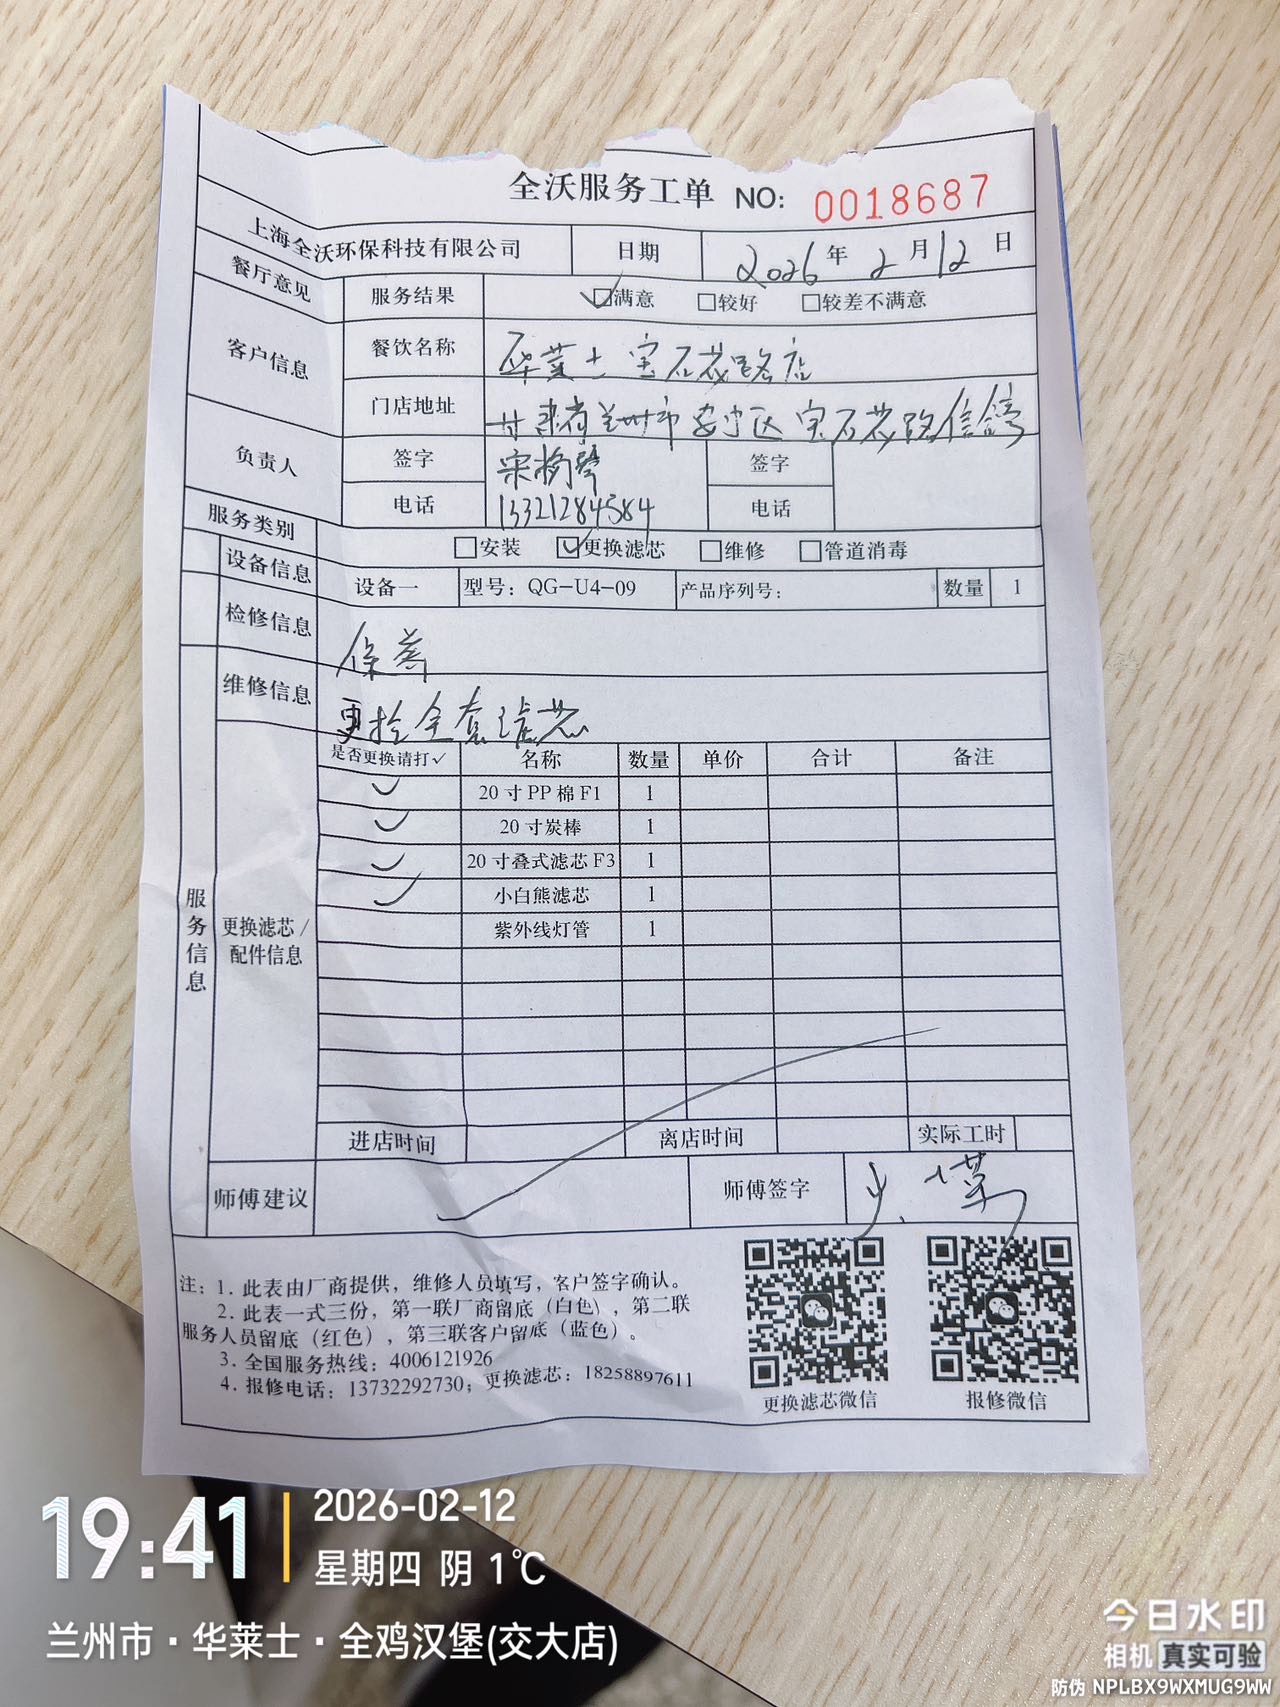 全沃服务工单 NO: 0018687
上海全沃环保科技有限公司 日期 2026年2月12日
餐厅意见 服务结果 ☑满意 □较好 □较差不满意
客户信息 餐饮名称 华莱士宝石花路店
门店地址 甘肃省兰州市安宁区宝石花路
负责人 签字 签字
电话 13321284584 电话
服务类别 □安装 ☑更换滤芯 □维修 □管道消毒
设备信息 设备一 型号：QG-U4-09 产品序列号： 数量 1
检修信息 保养
维修信息 更换全套滤芯
服务信息
更换滤芯/配件信息
是否更换请打✓ 名称 数量 单价 合计 备注
✓ 20寸PP棉F1 1
✓ 20寸炭棒 1
✓ 20寸叠式滤芯F3 1
✓ 小白熊滤芯 1
紫外线灯管 1
进店时间 离店时间 实际工时
师傅建议 师傅签字
注：1. 此表由厂商提供，维修人员填写，客户签字确认。
2. 此表一式三份，第一联厂商留底（白色），第二联
服务人员留底（红色），第三联客户留底（蓝色）。
3. 全国服务热线：4006121926
4. 报修电话：13732292730；更换滤芯：18258897611
更换滤芯微信 报修微信
19:41 2026-02-12
星期四 阴 1℃
兰州市·华莱士·全鸡汉堡(交大店)
今日水印
相机 真实可验
防伪 NPLBX9WXMUG9WW